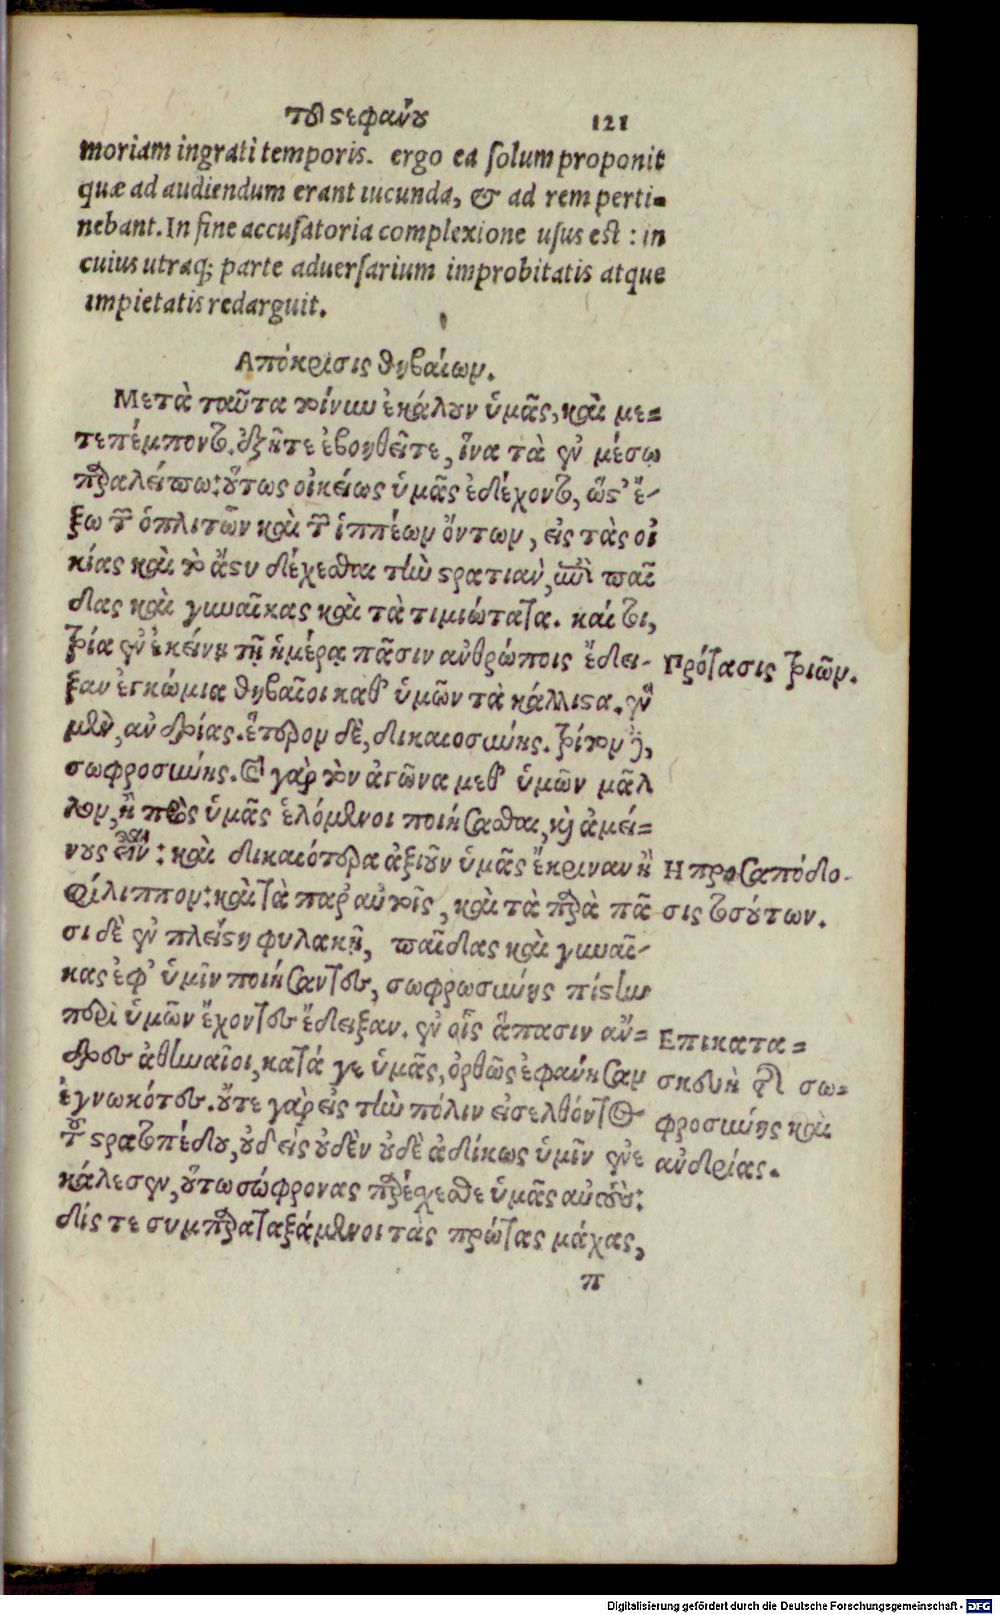 τοῦ στεφάνου 121
moriam ingrati temporis. ergo ea ſolum proponit
quæ ad audiendum erant iucunda, & ad rem perti=
nebant. In fine accuſatoria complexione uſus eſt : in
cuius utraq; parte aduerſarium improbitatis atque
impietatis redarguit.
Απόκρισις θηβαίων.
Μετὰ ταῦτα τοίνυν ἐκάλουν ὑμᾶς, καὶ με=
τεπέμποντο. ἐξῆτε ἐβοηθεῖτε, ἵνα τὰ ἐν μέσῳ
παραλείπω: οὕτως οἰκείως ὑμᾶς ἐδέχοντο, ὥστ' ἔ-
ξω τῶν ὁπλιτῶν καὶ τῶν ἱππέων ὄντων, εἰς τὰς οἰ
κίας καὶ τὸ ἄστυ δέχεσθαι τὴν στρατιὰν, ἐπὶ παῖ
δας καὶ γυναῖκας καὶ τὰ τιμιώτατα. καίτοι,
τρία ἐν ἐκείνῃ τῇ ἡμέρᾳ πᾶσιν ἀνθρώποις ἔδει-
ξαν ἐγκώμια θηβαῖοι καθ' ὑμῶν τὰ κάλλιστα. ἓν
μὲν, ἀνδρίας. ἕτερον δὲ, δικαιοσύνης. τρίτον δὲ,
σωφροσύνης. καὶ γὰρ τὸν ἀγῶνα μεθ' ὑμῶν μᾶλ
λον, ἢ πρὸς ὑμᾶς ἑλόμενοι ποιήσασθαι, καὶ ἀμεί=
νους εἶναι: καὶ δικαιότερα ἀξιοῦν ὑμᾶς ἔκριναν ἢ
Φίλιππον: καὶ τὰ παρ' αὐτοῖς, καὶ τὰ παρὰ πᾶ
σι δὲ ἐν πλείστῃ φυλακῇ, παῖδας καὶ γυναῖ-
κας ἐφ' ὑμῖν ποιήσαντες, σωφρωσύνης πίστιν
περὶ ὑμῶν ἔχοντες ἔδειξαν. ἐν οἷς ἅπασιν ἄν=
δρες ἀθηναῖοι, κατά γε ὑμᾶς, ὀρθῶς ἐφάνησαν
ἐγνωκότες. οὔτε γὰρ εἰς τὴν πόλιν εἰσελθόντος
τοῦ στρατοπέδου, οὐδεὶς οὐδὲν οὐδὲ ἀδίκως ὑμῖν ἐνε
κάλεσεν, οὕτω σώφρονας παρέχεσθε ὑμᾶς αὐτούς:
δίς τε συμπαραταξάμενοι τὰς πρώτας μάχας,
π
Πρότασις τριῶν.
Η προσαπόδο-
σις τοσούτων.
Επικατα=
σκευὴ περὶ σω=
φροσύνης καὶ
ἀνδρίας.
Digitalisierung gefördert durch die Deutsche Forschungsgemeinschaft - DFG